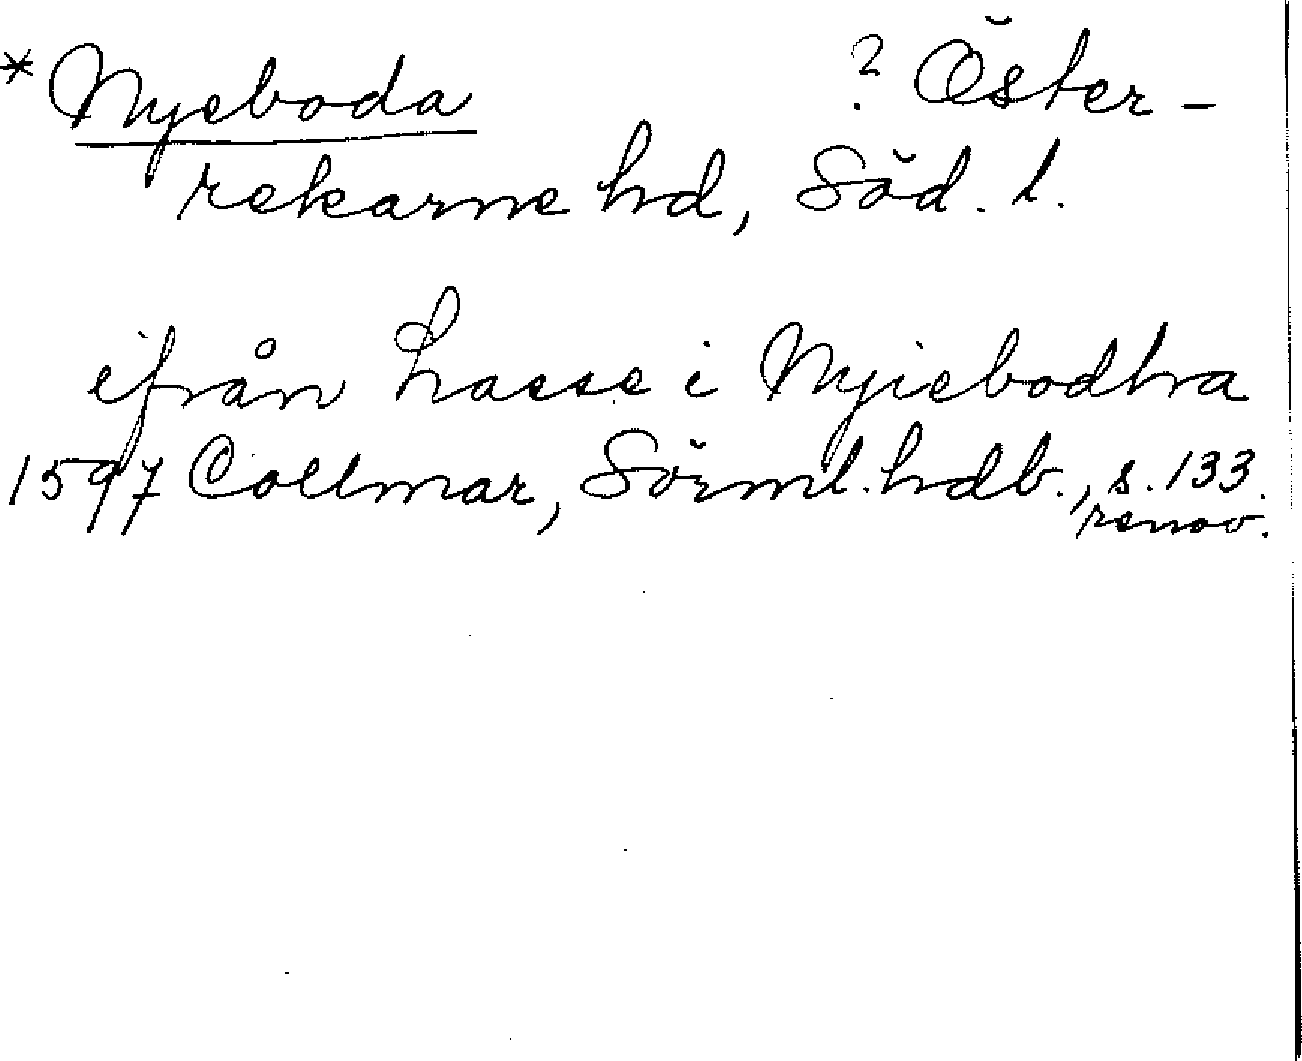 * Nyeboda ? Öster-
rekarne hd, Söd. l.
ifrån Lasse i Nyiebodha
1597 Collmar, Sörml. hdb., s. 133.
renov.